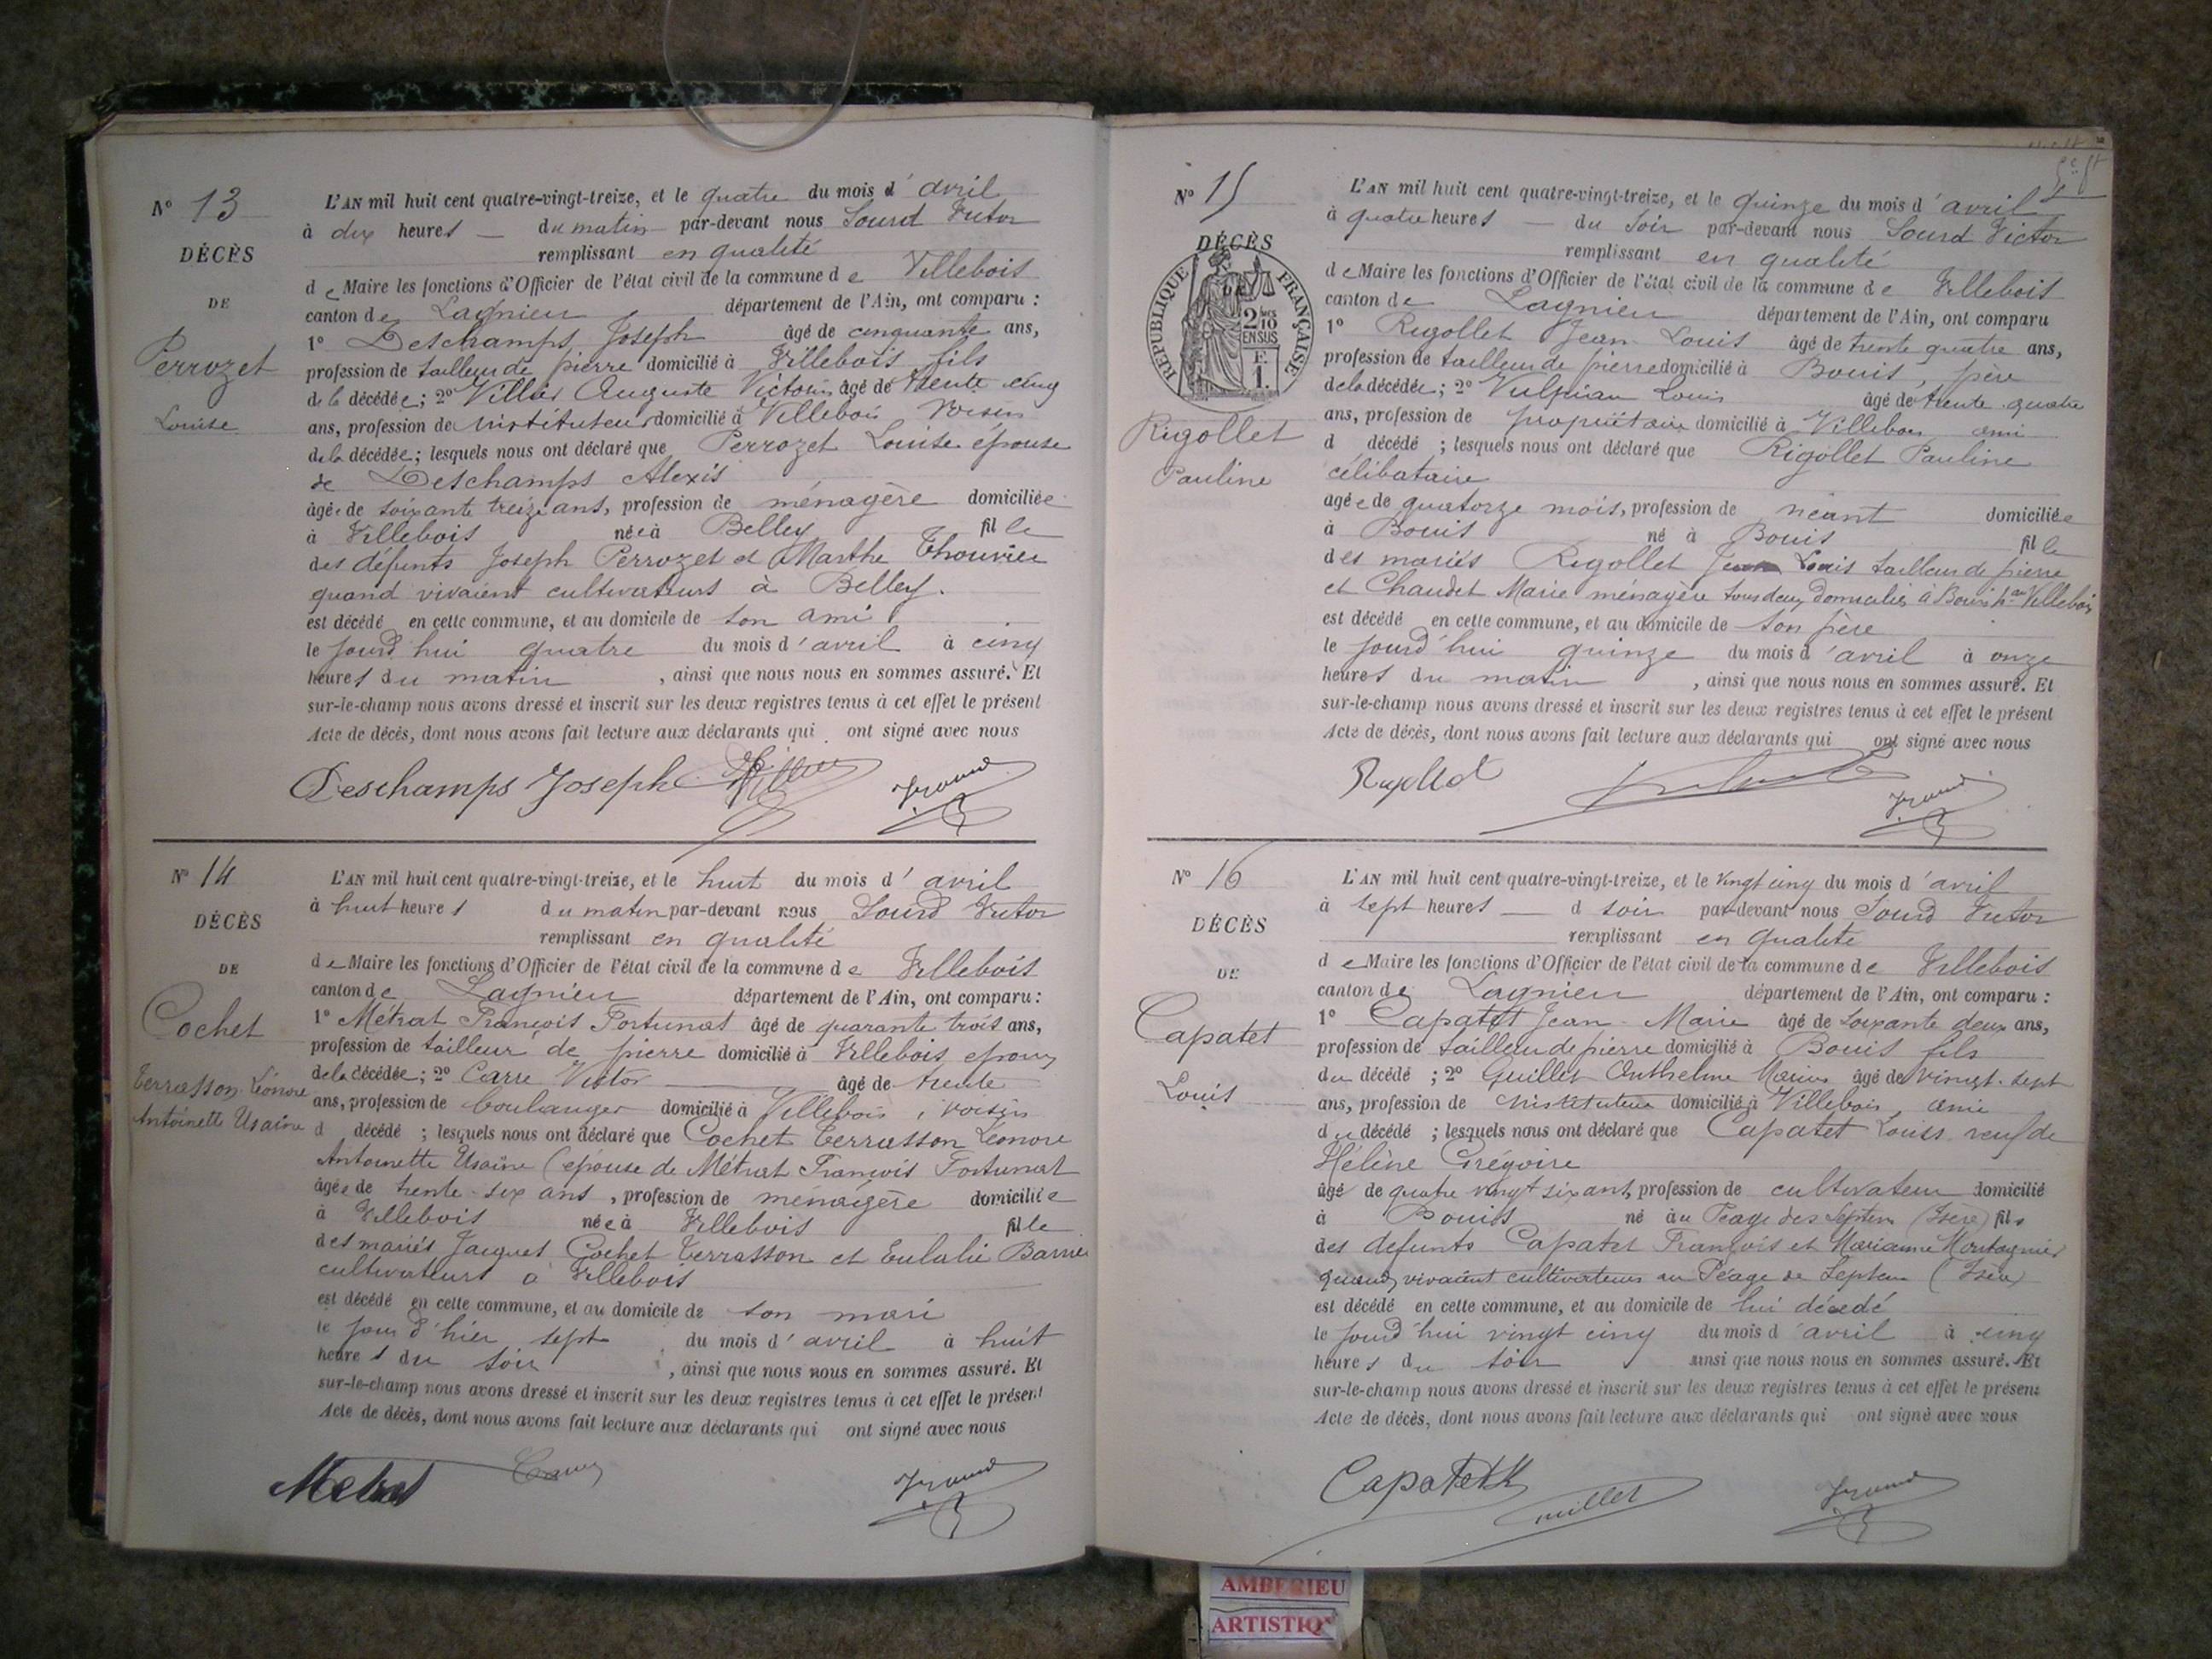 N° 13
DÉCÈS
DE
Perrozet
Louise
L'AN mil huit cent quatre-vingt-treize, et le quatre du mois d'avril
à dix heures — du matin par-devant nous Sourd Victor
remplissant en qualité
de Maire les fonctions d'Officier de l'état civil de la commune de Villebois
canton de Lagnieu département de l'Ain, ont comparu :
1° Deschamps Joseph âgé de cinquante ans,
profession de tailleur de pierre domicilié à Villebois fils
de la décédée; 2° Villier Auguste Victorin âgé de trente cinq
ans, profession de instituteur domicilié à Villebois voisin
de la décédée; lesquels nous ont déclaré que Perrozet Louise épouse
de Deschamps Alexis
âgée de soixante treize ans, profession de ménagère domiciliée
à Villebois née à Belley fille
des défunts Joseph Perrozet et Marthe Thouvier
quand vivaient cultivateurs à Belley.
est décédé en cette commune, et au domicile de son ami
le jourd'hui quatre du mois d'avril à cinq
heures du matin , ainsi que nous nous en sommes assuré. Et
sur-le-champ nous avons dressé et inscrit sur les deux registres tenus à cet effet le présent
Acte de décès, dont nous avons fait lecture aux déclarants qui ont signé avec nous
Deschamps Joseph
N° 14
DÉCÈS
DE
Cochet
Terrasson Léonore
Antoinette Usaine
L'AN mil huit cent quatre-vingt-treize, et le huit du mois d'avril
à huit heures du matin par-devant nous Sourd Victor
remplissant en qualité
de Maire les fonctions d'Officier de l'état civil de la commune de Villebois
canton de Lagnieu département de l'Ain, ont comparu :
1° Métrat François Fortunat âgé de quarante trois ans,
profession de tailleur de pierre domicilié à Villebois époux
de la décédée; 2° Carre Victor — âgé de trente
ans, profession de boulanger domicilié à Villebois, voisin
d décédé ; lesquels nous ont déclaré que Cochet Terrasson Léonore
Antoinette Usaine (épouse de Métrat François Fortunat
âgée de trente-six ans, profession de ménagère domiciliée
à Villebois née à Villebois fille
des mariés Jacques Cochet Terrasson et Eulalie Barrier
cultivateurs à Villebois
est décédé en cette commune, et au domicile de son mari
le jour d'hier sept du mois d'avril à huit
heures du soir , ainsi que nous nous en sommes assuré. Et
sur-le-champ nous avons dressé et inscrit sur les deux registres tenus à cet effet le présent
Acte de décès, dont nous avons fait lecture aux déclarants qui ont signé avec nous
Metrat
N° 15
DÉCÈS
DE
RÉPUBLIQUE FRANÇAISE
2 10
EN SUS
F.
1.
Rigollet
Pauline
L'AN mil huit cent quatre-vingt-treize, et le quinze du mois d'avril
à quatre heures — du soir par-devant nous Sourd Victor
remplissant en qualité
de Maire les fonctions d'Officier de l'état civil de la commune de Villebois
canton de Lagnieu département de l'Ain, ont comparu
1° Rigollet Jean Louis âgé de trente quatre ans,
profession de tailleur de pierre domicilié à Bouis, père
de la décédée; 2° Vulpian Louis âgé de trente quatre
ans, profession de propriétaire domicilié à Villebois ami
d décédé ; lesquels nous ont déclaré que Rigollet Pauline
célibataire
âgée de quatorze mois, profession de néant domiciliée
à Bouis né à Bouis fille
des mariés Rigollet Jean Louis tailleur de pierre
et Chaudet Marie ménagère tous deux domiciliés à Bouis hau Villebois
est décédé en cette commune, et au domicile de son père
le jourd'hui quinze du mois d'avril à onze
heures du matin , ainsi que nous nous en sommes assuré. Et
sur-le-champ nous avons dressé et inscrit sur les deux registres tenus à cet effet le présent
Acte de décès, dont nous avons fait lecture aux déclarants qui ont signé avec nous
Rigollet
N° 16
DÉCÈS
DE
Capatet
Louis
L'AN mil huit cent quatre-vingt-treize, et le vingt cinq du mois d'avril
à sept heures — d soir par-devant nous Sourd Victor
remplissant en qualité
de Maire les fonctions d'Officier de l'état civil de la commune de Villebois
canton de Lagnieu département de l'Ain, ont comparu :
1° Capatet Jean-Marie âgé de soixante deux ans,
profession de tailleur de pierre domicilié à Bouis fils
du décédé ; 2° Guillet Anthelme Marius âgé de vingt-sept
ans, profession de instituteur domicilié à Villebois, ami
du décédé ; lesquels nous ont déclaré que Capatet Louis veuf de
Hélène Grégoire
âgé de quatre vingt six ans, profession de cultivateur domicilié
à Bouis né au Péage des Septem (Isère) fils
des défunts Capatet François et Marianne Montagnier
quand vivaient cultivateurs au Péage de Septem (Isère)
est décédé en cette commune, et au domicile de lui décédé
le jourd'hui vingt cinq du mois d'avril à cinq
heures du soir ainsi que nous nous en sommes assuré. Et
sur-le-champ nous avons dressé et inscrit sur les deux registres tenus à cet effet le présent
Acte de décès, dont nous avons fait lecture aux déclarants qui ont signé avec nous
Capatet
Guillet
AMBERIEU
ARTISTIQ